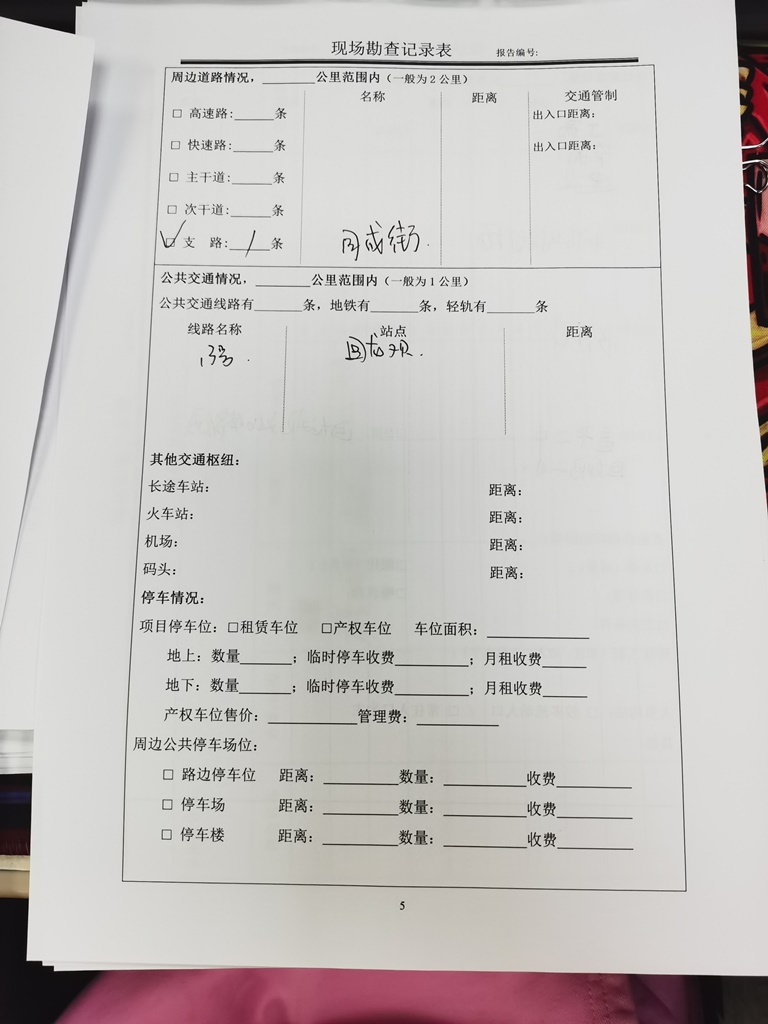 现场勘查记录表 报告编号:
周边道路情况，______公里范围内（一般为2公里）
名称 距离 交通管制
□ 高速路:_____条 出入口距离：
□ 快速路:_____条 出入口距离：
□ 主干道:_____条
□ 次干道:_____条
☑ 支 路:__/__条 同成街.
公共交通情况，______公里范围内（一般为1公里）
公共交通线路有______条，地铁有_____条，轻轨有_____条
线路名称 站点 距离
13号.
其他交通枢纽：
长途车站： 距离：
火车站： 距离：
机场： 距离：
码头： 距离：
停车情况：
项目停车位：□租赁车位 □产权车位 车位面积：__________
地上：数量_____；临时停车收费_______；月租收费____
地下：数量_____；临时停车收费_______；月租收费____
产权车位售价：_________管理费：________
周边公共停车场位：
□ 路边停车位 距离：_______数量：________收费_______
□ 停车场 距离：_______数量：________收费_______
□ 停车楼 距离：_______数量：________收费_______
5